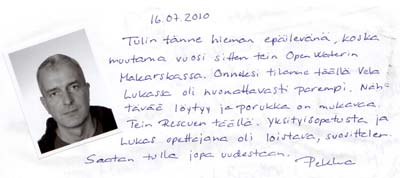 16.07.2010
Tulin tänne hieman epäilevänä, koska
muutama vuosi sitten tein Open Waterin
Makarskassa. Onneksi tilanne täällä Vela
Lukassa oli huomattavasti parempi. Näh-
tävää löytyy ja porukka on mukavaa.
Tein Rescuen täällä. Yksityisopetusta ja
Lukas opettajana oli loistava, suosittelen.
Saatan tulla jopa uudestaan.
Pekka